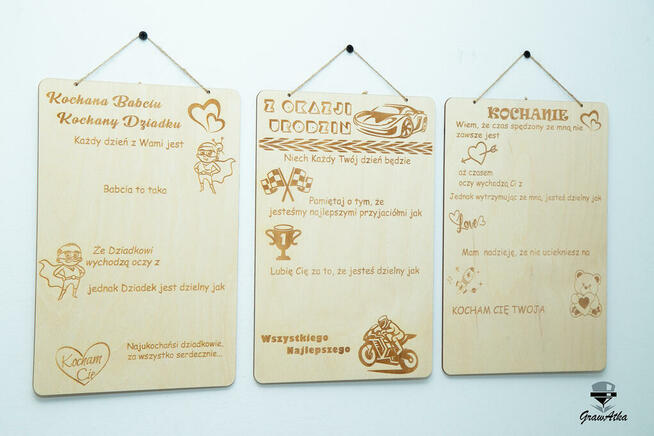 Kochana Babciu
Kochany Dziadku
Każdy dzień z Wami jest
Babcia to taka
Że Dziadkowi
wychodzą oczy z
jednak Dziadek jest dzielny jak
Najukochańsi dziadkowie,
za wszystko serdecznie...
Kocham
Cię
Z OKAZJI
URODZIN
Niech Każdy Twój dzień będzie
Pamiętaj o tym, że
jesteśmy najlepszymi przyjaciółmi jak
1
Lubię Cię za to, że jesteś dzielny jak
Wszystkiego
Najlepszego
KOCHANIE
Wiem, że czas spędzony ze mną nie
zawsze jest
aż czasem
oczy wychodzą Ci z
Jednak wytrzymując ze mną, jesteś dzielny jak
Love
Mam nadzieję, że nie uciekniesz na
KOCHAM CIĘ TWOJA
GrawAtka